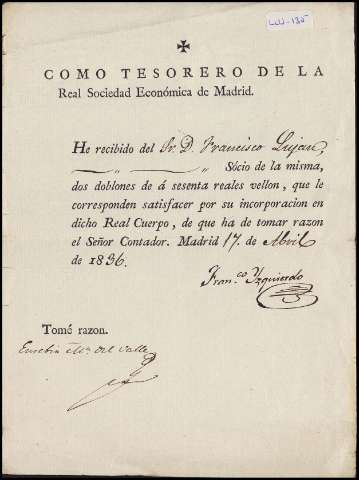 LUJ-135
✠
COMO TESORERO DE LA
Real Sociedad Económica de Madrid.
He recibido del Sr. D. Francisco Lujan,
Sócio de la misma,
dos doblones de á sesenta reales vellon, que le
corresponden satisfacer por su incorporacion en
dicho Real Cuerpo, de que ha de tomar razon
el Señor Contador. Madrid 17. de Abril
de 1836.
Fran.co Yzquierdo
Tomé razon.
Eusebio Ma. del Valle